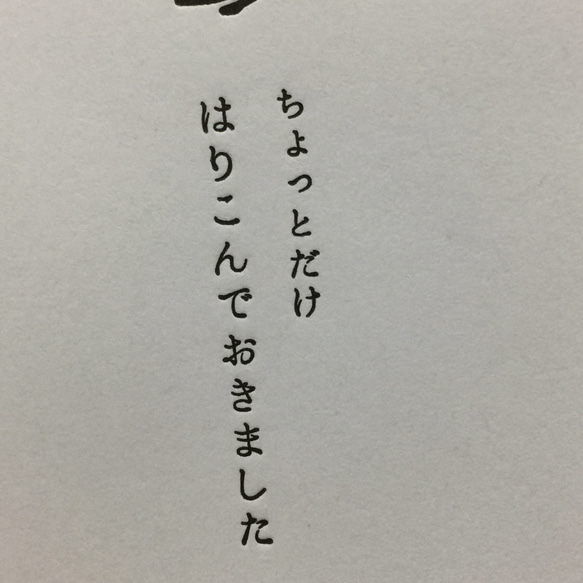 ちょっとだけ
はりこんでおきました